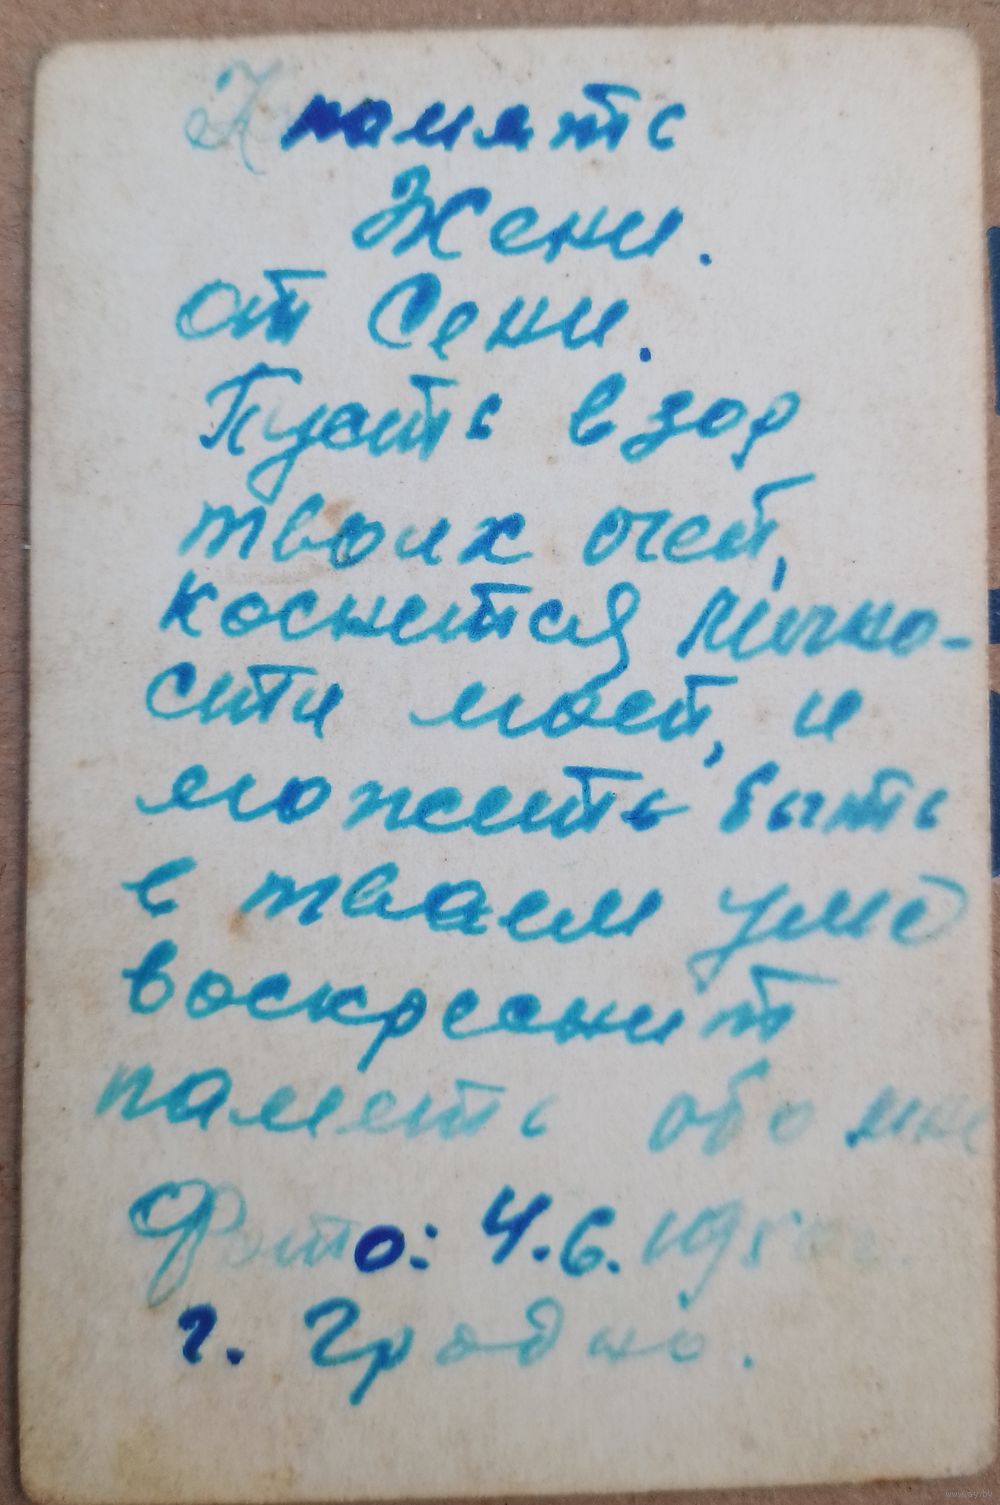 На память
Жени.
от Сени.
Пусть взор
твоих очей,
коснется лично-
сти моей, и
можеть быть
в тваем уме
воскреснит
паметь обо мне
Фото: 4.6.
г. Гродно.
www.ay.by